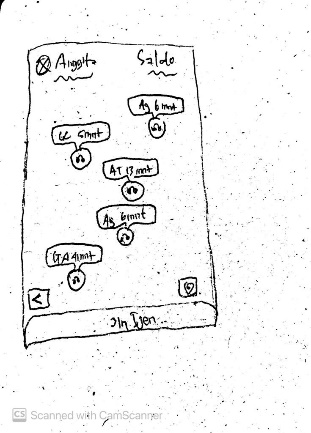 Anggita Saldo
Ag 6 mnt
GC 5 mnt
AT 13 mnt
AB 6 mnt
GA 4 mnt
<
CS Scanned with CamScanner